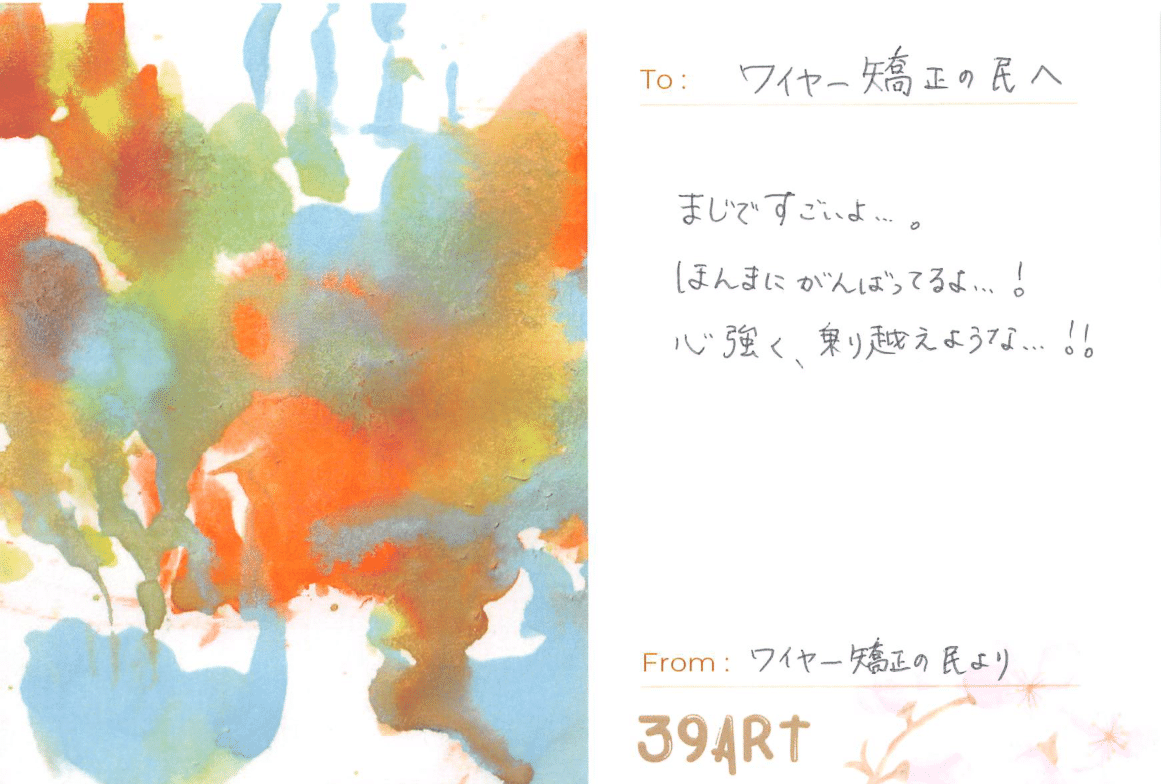 To : ワイヤー矯正の民へ
まじですごいよ…。
ほんまにがんばってるよ…!
心強く、乗り越えような…!!
From : ワイヤー矯正の民より
39ART